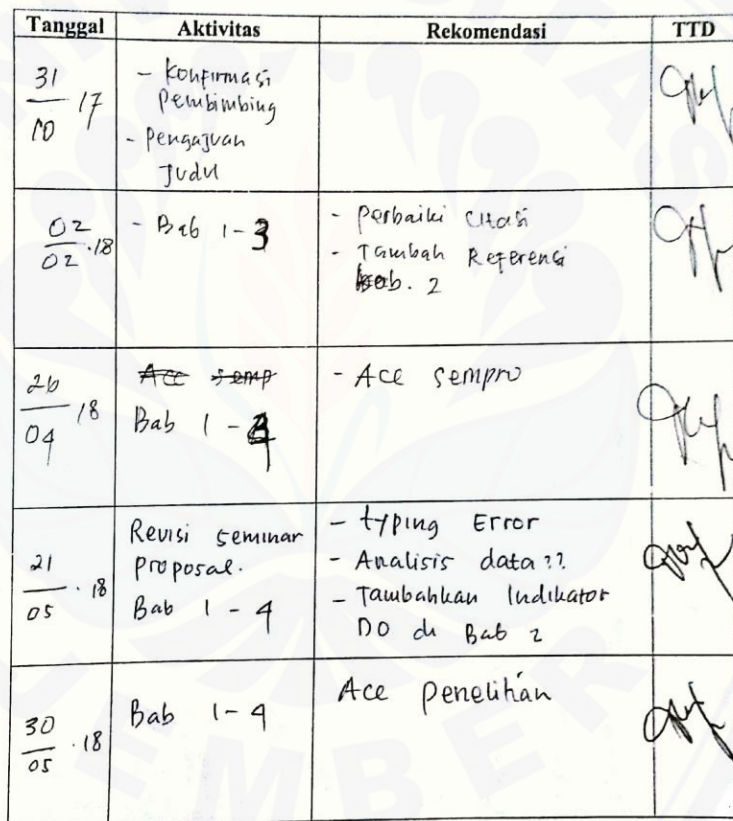 Tanggal Aktivitas Rekomendasi TTD
31/10 17
- Konfirmasi
Pembimbing
- Pengajuan
Judul
02/02 .18
- Bab 1-3
- Perbaiki Citasi
- Tambah Referensi
bab. 2
26/04 18
Acc semp
Bab 1-4
- Acc sempro
21/05 . 18
Revisi seminar
proposal.
Bab 1 - 4
- typing Error
- Analisis data ??
- Tambahkan Indikator
DO di Bab 2
30/05 .18
Bab 1-4
Acc penelitian
JEMBER